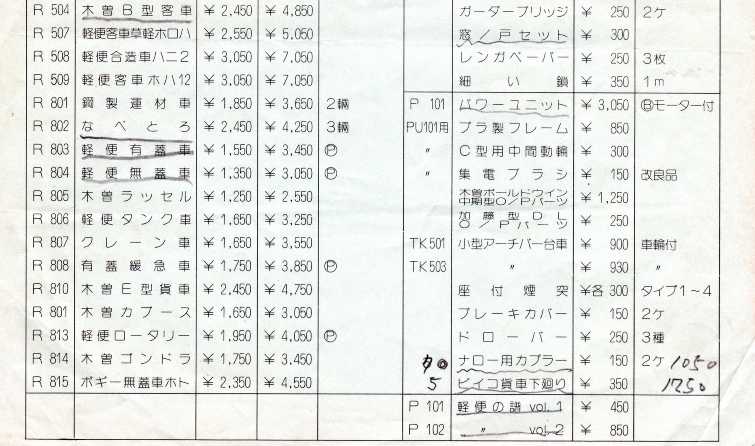 R 504 木曽B型客車 ¥2,450 ¥4,850
R 507 軽便客車草軽ホロハ ¥2,550 ¥5,050
R 508 軽便合造車ハニ2 ¥3,050 ¥7,050
R 509 軽便客車ホハ12 ¥3,050 ¥7,050
R 801 鋼製運材車 ¥1,850 ¥3,650 2輛
R 802 なべとろ ¥2,450 ¥4,250 3輛
R 803 軽便有蓋車 ¥1,550 ¥3,450 Ⓟ
R 804 軽便無蓋車 ¥1,350 ¥3,050 Ⓟ
R 805 木曽ラッセル ¥1,250 ¥2,550
R 806 軽便タンク車 ¥1,650 ¥3,250
R 807 クレーン車 ¥1,650 ¥3,550
R 808 有蓋緩急車 ¥1,750 ¥3,850 Ⓟ
R 810 木曽E型貨車 ¥2,450 ¥4,750
R 801 木曽カブース ¥1,650 ¥3,050
R 813 軽便ロータリー ¥1,950 ¥4,050 Ⓟ
R 814 木曽ゴンドラ ¥1,750 ¥3,450
R 815 ボギー無蓋車ホト ¥2,350 ¥4,550
ガーダーブリッジ ¥250 2ケ
窓/戸セット ¥300
レンガペーパー ¥250 3枚
細い鎖 ¥350 1m
P 101 パワーユニット ¥3,050 Ⓑモーター付
PU101用 プラ製フレーム ¥850
〃 C型用中間動輪 ¥300
〃 集電ブラシ ¥150 改良品
木曽ボールドウイン
中期型O/Pパーツ ¥1,250
加藤型DL
O/Pパーツ ¥250
TK501 小型アーチバー台車 ¥900 車輪付
TK503 〃 ¥930 〃
座付煙突 ¥各300 タイプ1〜4
ブレーキカバー ¥150 2ケ
ドローバー ¥250 3種
ナロー用カプラー ¥150 2ケ 1050
5 ビイコ貨車下廻り ¥350 1750
P 101 軽便の譜 vol.1 ¥450
P 102 〃 vol.2 ¥850